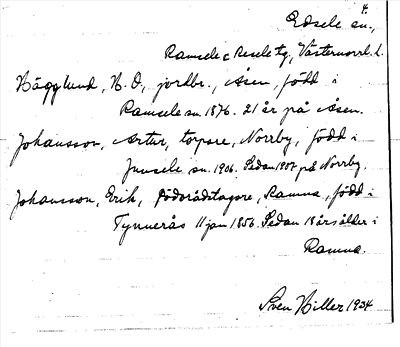 4.
Edsele sn.,
Ramsele o Resele tg, Västernorrl. l.
Hägglund, N. O., jordbr., Åsen, född i
Ramsele sn. 1876. 21 år på Åsen.
Johansson, Artur, torpare, Norrby, född i
Junsele sn. 1906. Sedan 1907 på Norrby.
Johansson, Erik, födorådstagare, Ramna, född i
Tynnerås 11 jan 1856. Sedan 18 årsålder i
Ramna.
Sven Hiller 1934